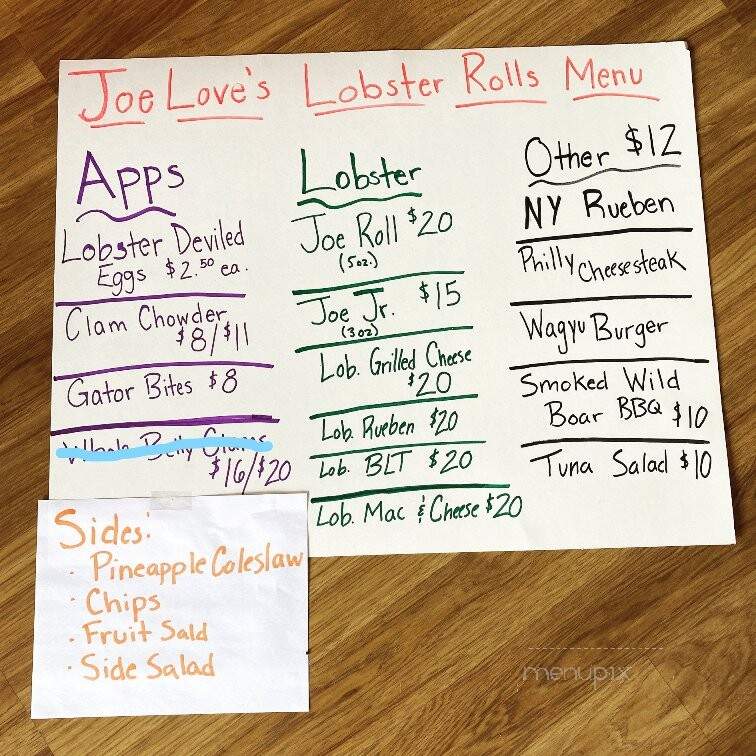 Joe Love's Lobster Rolls Menu
Apps
Lobster Deviled
Eggs $2.50 ea.
Clam Chowder
$8/$11
Gator Bites $8
Whole Belly Clams
$16/$20
Lobster
Joe Roll $20
(5oz.)
Joe Jr. $15
(3oz)
Lob. Grilled Cheese
$20
Lob. Rueben $20
Lob. BLT $20
Lob. Mac & Cheese $20
Other $12
NY Rueben
Philly Cheesesteak
Wagyu Burger
Smoked Wild
Boar BBQ $10
Tuna Salad $10
Sides:
· Pineapple Coleslaw
· Chips
· Fruit Sald
· Side Salad
menupix